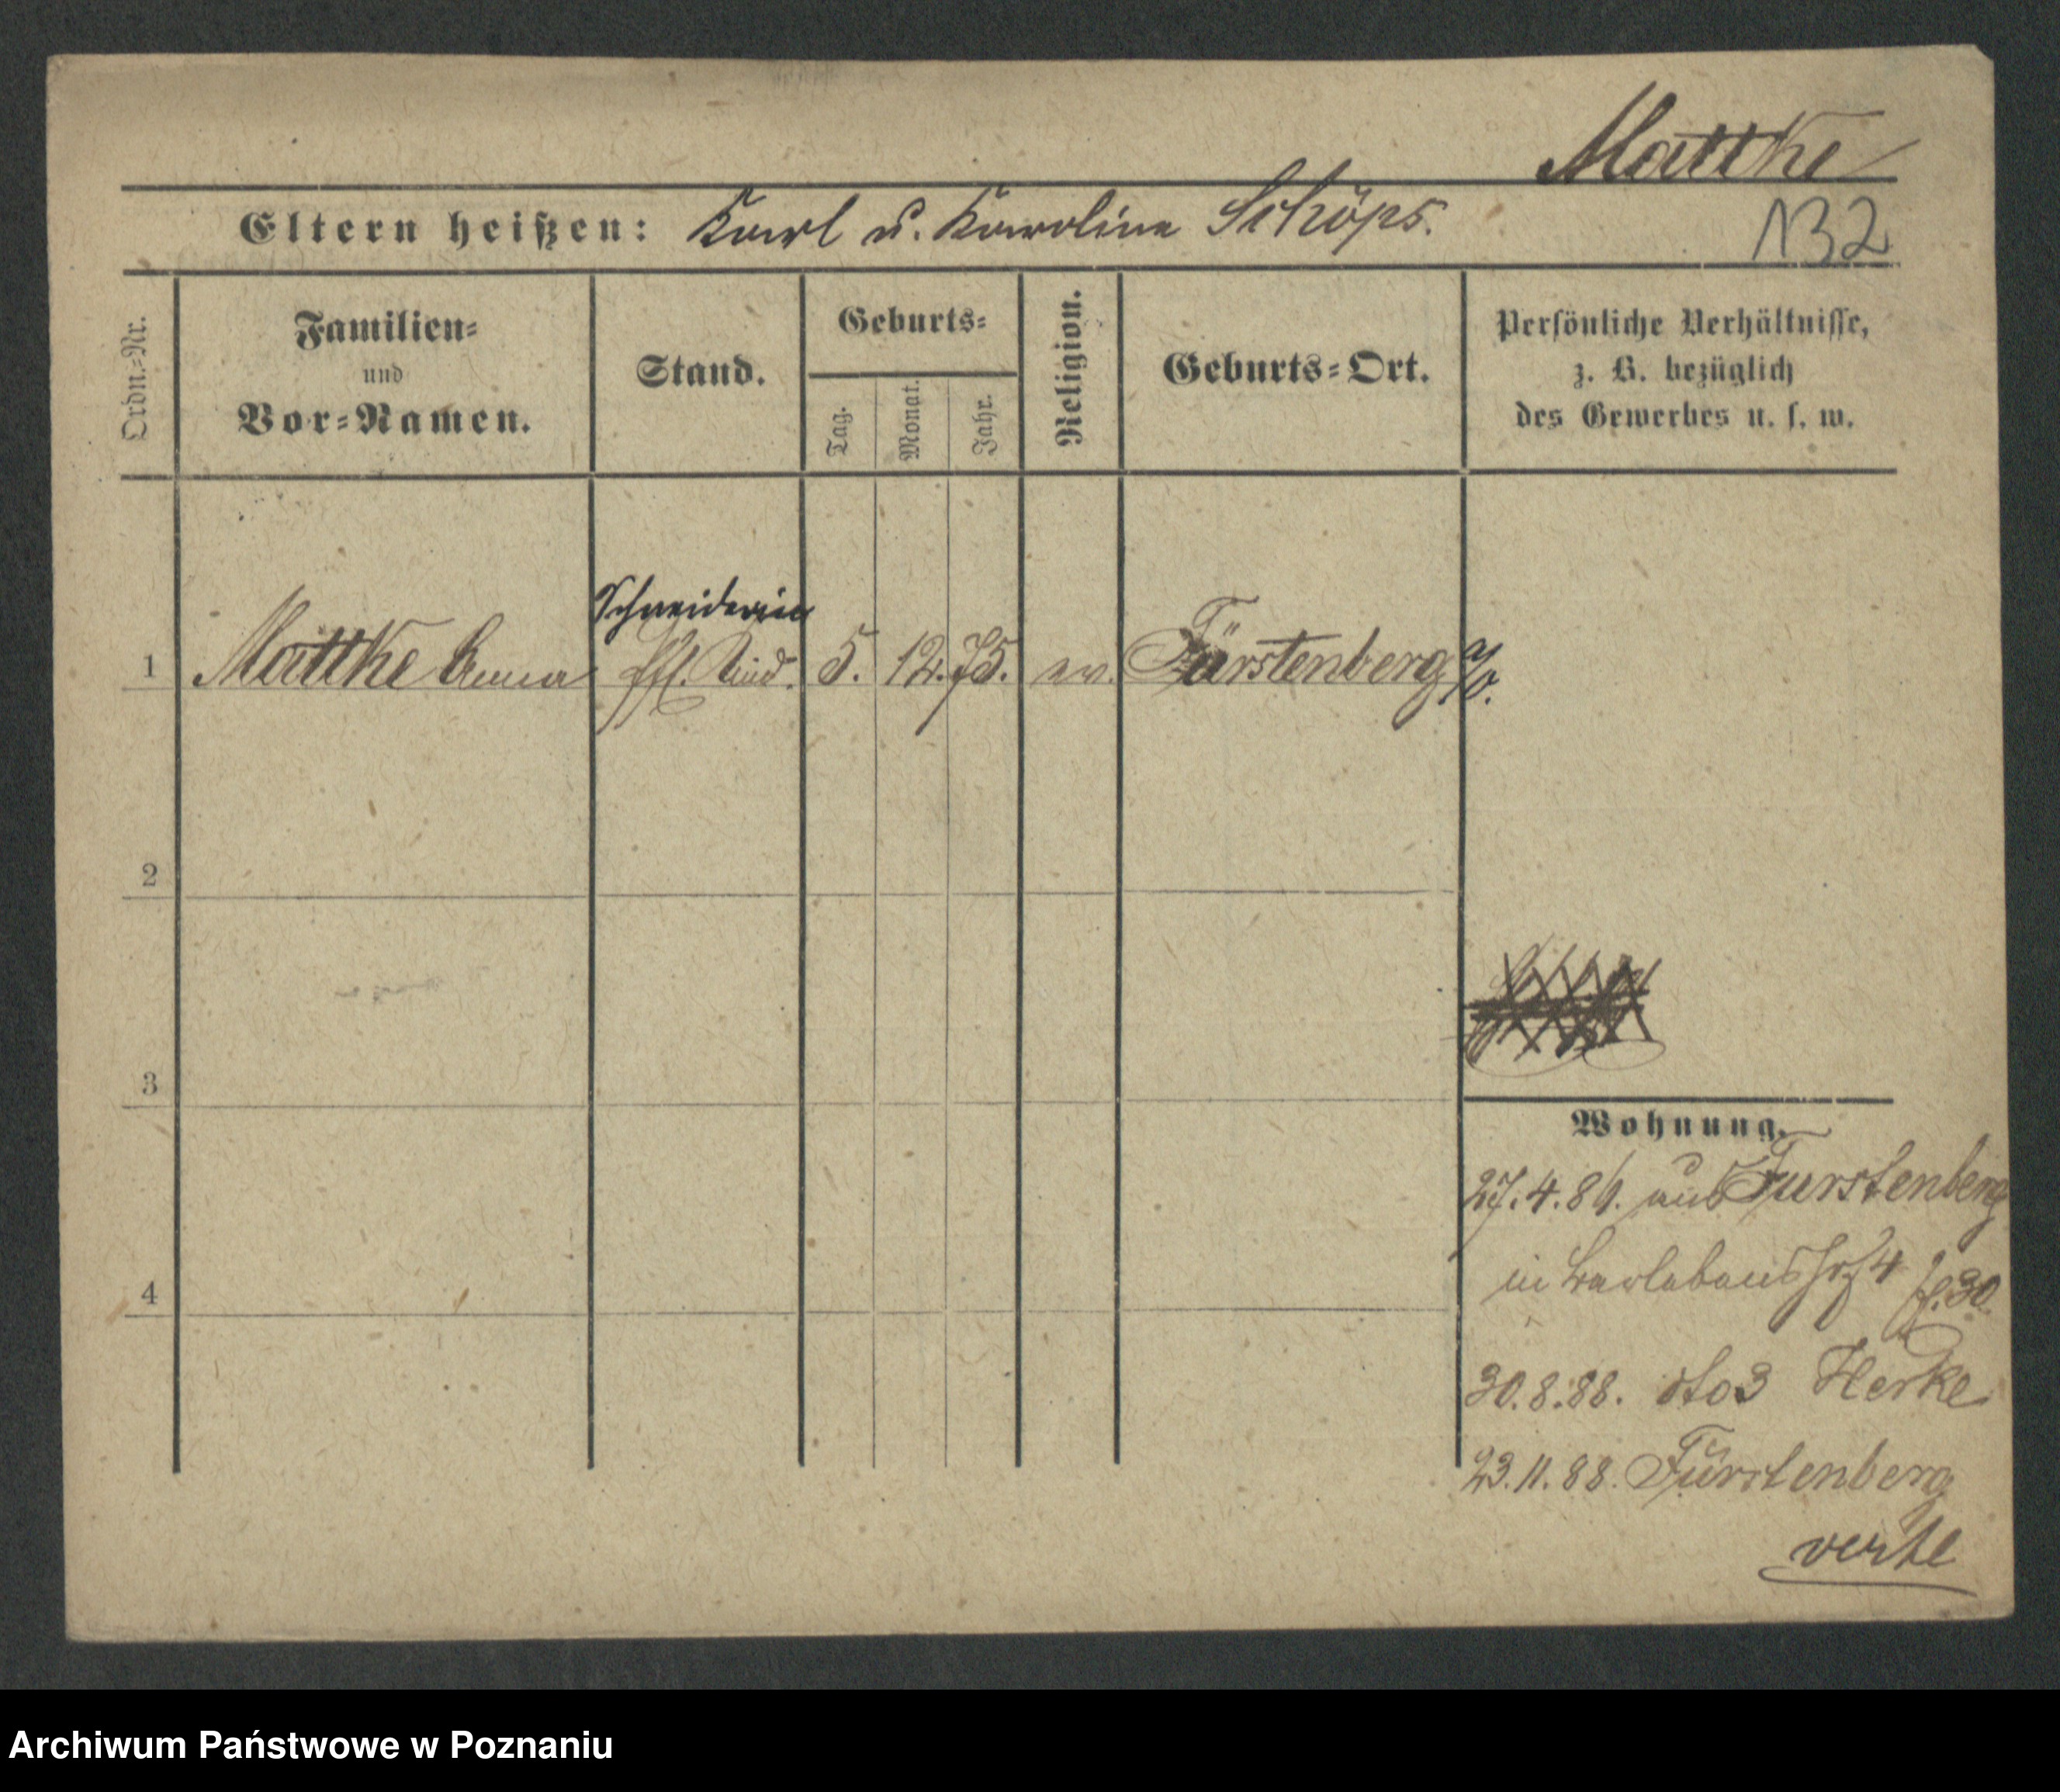 Mattke
Eltern heißen: Karl u. Karoline Schöps.
132
Ordn.-Nr.
Familien-
und
Vor-Namen.
Stand.
Geburts-
Tag.
Monat.
Jahr.
Religion.
Geburts-Ort.
Persönliche Verhältnisse,
z. B. bezüglich
des Gewerbes u. s. w.
Schneiderin
1 Mattke Anna Kind. 5. 12. 75. ev. Fürstenberg a/O.
2
3
4
Wohnung.
27.4.86. aus Furstenberg
in 4 30.
30.8.88. 3 Herke
23.11.88. Fürstenberg
verte
Archiwum Państwowe w Poznaniu